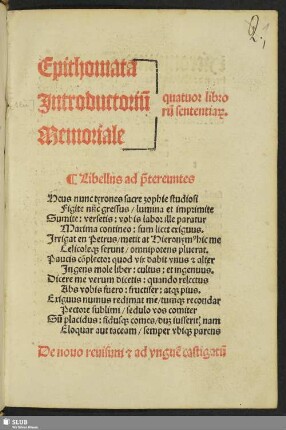 2,
Epithomata
Introductoriũ
Memoriale
quatuor libro
rũ sententiaꝝ.
¶ Libellus ad p̃tereuntes
Heus nunc tyrones sacre zophie studiosi
Figite nũc gressus / lumina et imprimite
Sumite: versetis: vobis labor ille paratur
Maxima contineo: sum licet exiguus.
Irrigat en Petrus / metit at Hieronymꝰ hic me
Celicoleqȝ serunt / omnipotens pluerat.
Paucis cõplector quod vix dabit vnus et alter
Ingens mole liber: cultus: et ingenuus.
Dicere me verum dicetis: quando relectus
Abs vobis fuero: fructifer: atqȝ pius.
Exiguus numus redimat me / tunqȝ recondar
Pectore sublimi / sedulo vos comiter
Sũ placidus: fidusqȝ comes / dux iusserit nam
Eloquar aut taceam / semper vbiqȝ parens
De nouo reuisum et ad vnguẽ castigatũ
SLUB